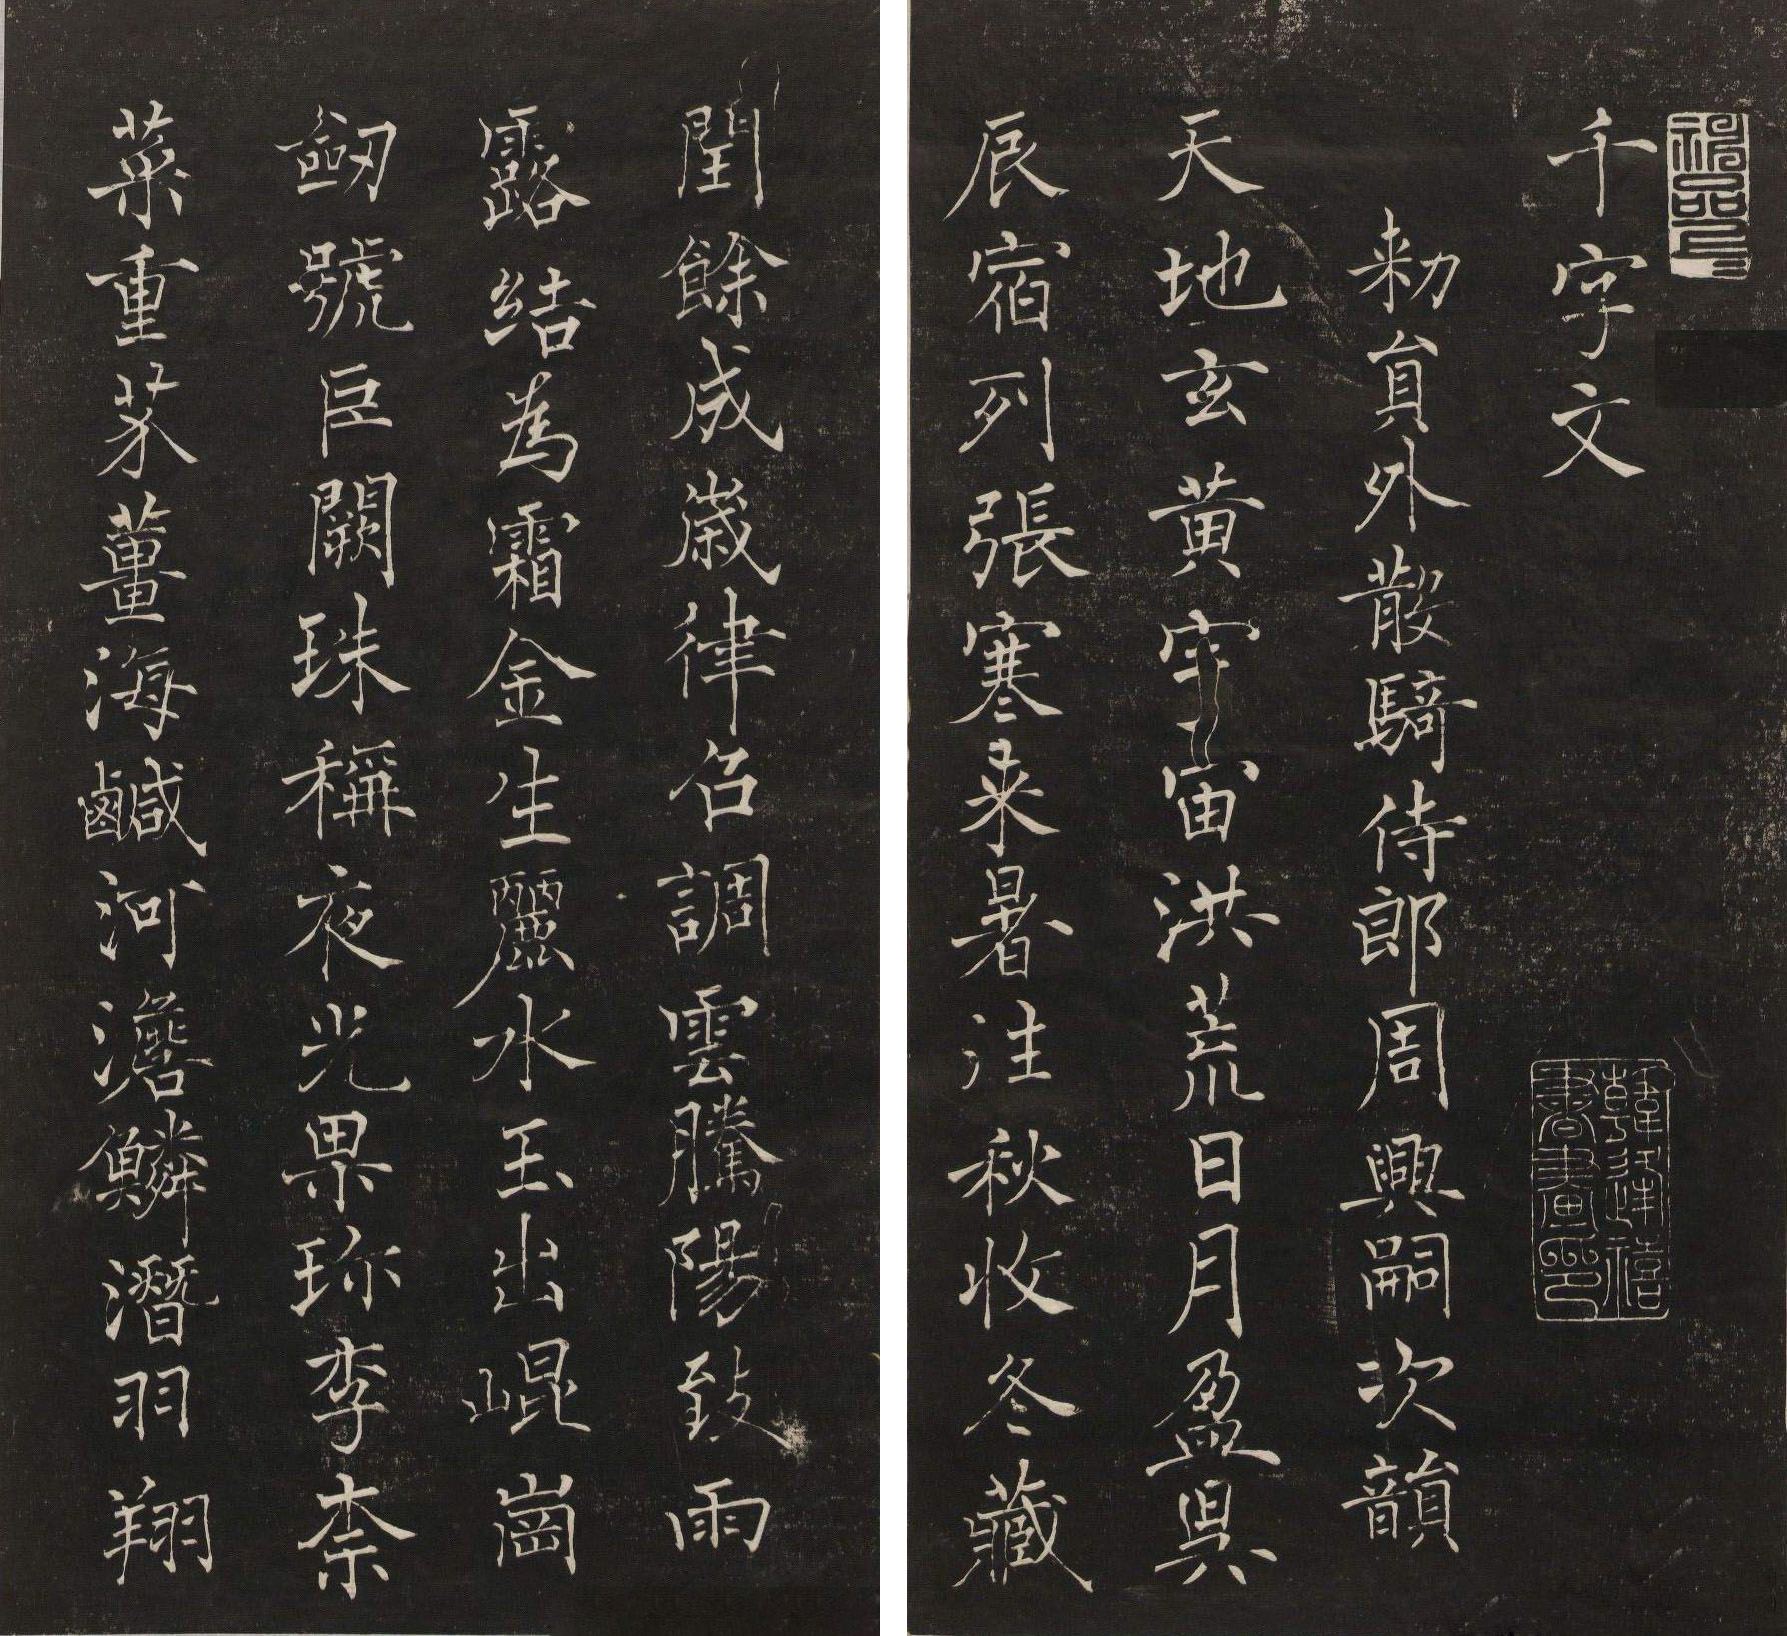 千字文
勑貟外散騎侍郎周興嗣次韻
天地玄黄宇宙洪荒日月盈昃
辰宿列張寒来暑往秋收冬藏
閏餘成歲律召調雲騰陽致雨
露結為霜金生麗水玉出崐崗
劒號巨闕珠稱夜光果珎李柰
菜重芥薑海鹹河澹鱗潛羽翔
韓逢禧書畫印